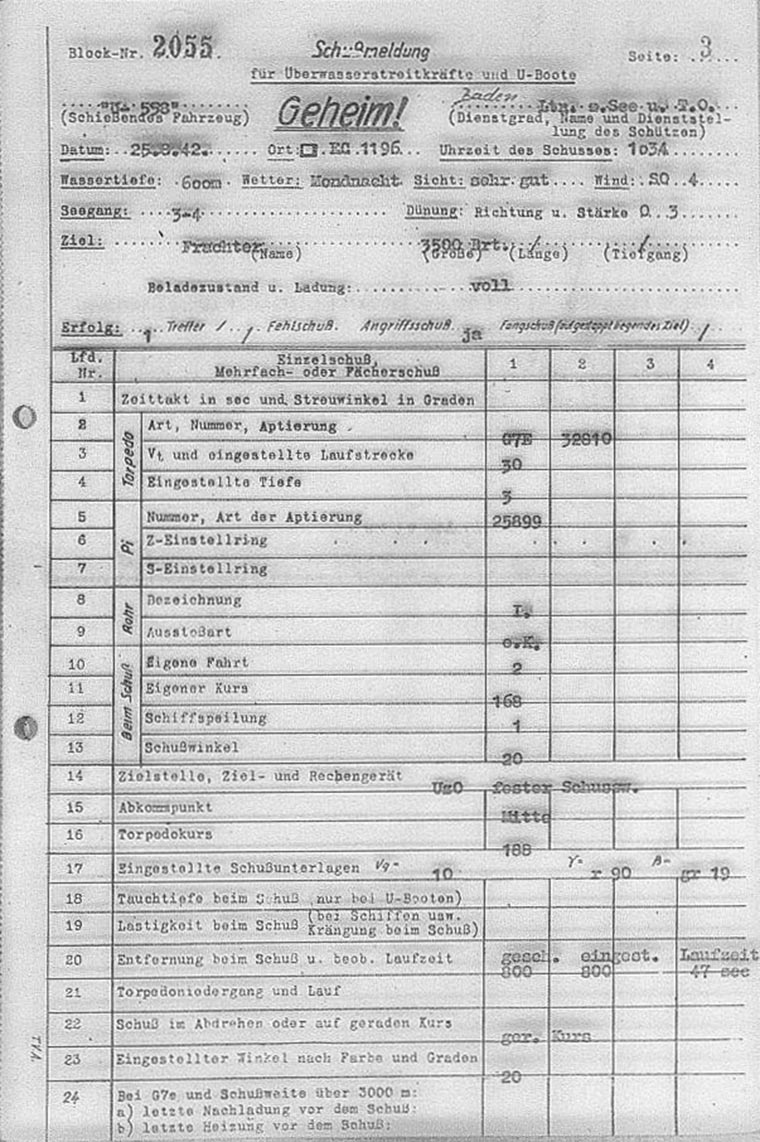 Block-Nr. 2055. Schußmeldung Seite: .3...
für Überwasserstreitkräfte und U-Boote
"U- 558" Geheim! Baden Ltn. z.See u. T.O.
(Schießendes Fahrzeug) (Dienstgrad, Name und Dienststel-
lung des Schützen)
Datum: 25.8.42. Ort: EC 1196 Uhrzeit des Schusses: 1034
Wassertiefe: 600m Wetter: Mondnacht Sicht: sehr gut Wind: SO 4
Seegang: 3-4 Dünung: Richtung u. Stärke O 3
Ziel: Frachter 3500 Brt. / /
(Name) (Größe) (Länge) (Tiefgang)
Beladezustand u. Ladung: voll
Erfolg: 1 Treffer / Fehlschuß. Angriffsschuß. ja Fangschuß (auf gestoppt liegendes Ziel) /
Lfd. Nr. Einzelschuß, Mehrfach- oder Fächerschuß 1 2 3 4
1 Zeittakt in sec und Streuwinkel in Graden
Torpedo
2 Art, Nummer, Aptierung G7E 32810
3 Vt und eingestellte Laufstrecke 30
4 Eingestellte Tiefe 3
Pi
5 Nummer, Art der Aptierung 25899
6 Z-Einstellring
7 S-Einstellring
Rohr
8 Bezeichnung I.
9 Ausstoßart o.K.
Beim Schuß
10 Eigene Fahrt 2
11 Eigener Kurs 168
12 Schiffspeilung 1
13 Schußwinkel 20
14 Zielstelle, Ziel- und Rechengerät UzO fester Schussw.
15 Abkommpunkt Mitte
16 Torpedokurs 188
17 Eingestellte Schußunterlagen Vg- 10 γ- r 90 β- gr 19
18 Tauchtiefe beim Schuß (nur bei U-Booten)
19 Lastigkeit beim Schuß (bei Schiffen usw. Krängung beim Schuß)
20 Entfernung beim Schuß u. beob. Laufzeit gesch. eingest. Laufzeit
800 800 47 sec
21 Torpedoniedergang und Lauf
22 Schuß im Abdrehen oder auf geraden Kurs ger. Kurs
23 Eingestellter Winkel nach Farbe und Graden 20
24 Bei G7e und Schußweite über 3000 m:
a) letzte Nachladung vor dem Schuß:
b) letzte Heizung vor dem Schuß: